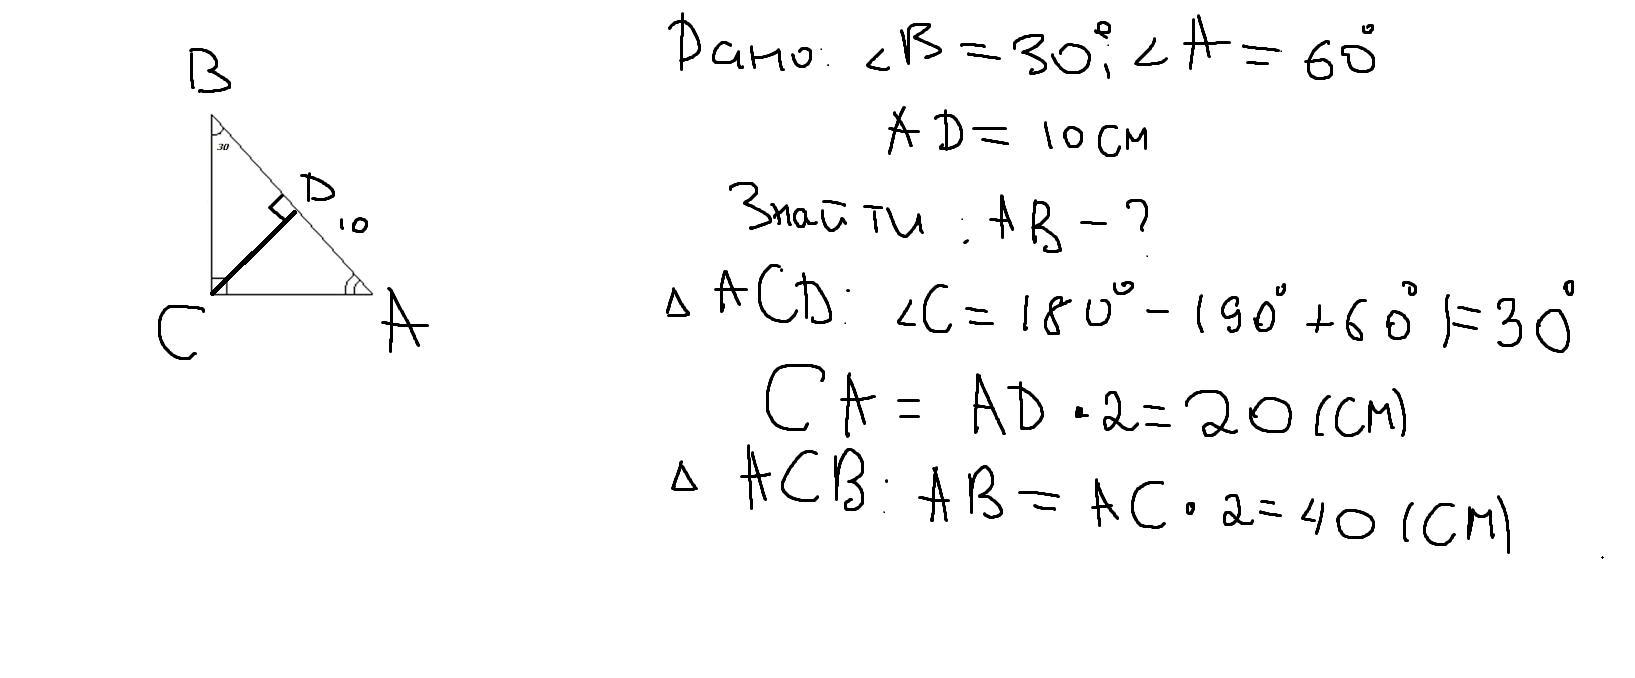 B
30
D
10
C
A
Дано: ∠B = 30°; ∠A = 60°
AD = 10 см
Знайти: AB - ?
Δ ACD: ∠C = 180° - (90° + 60°) = 30°
CA = AD · 2 = 20 (см)
Δ ACB: AB = AC · 2 = 40 (см)